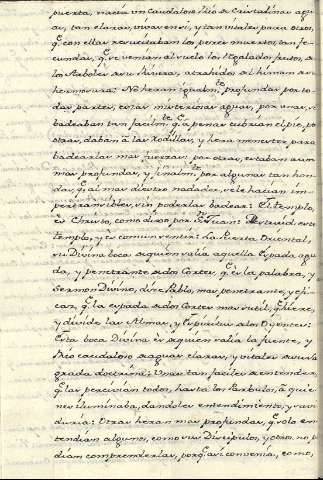 puerta, nacía un caudaloso Rio de Cristalinas agu
as, tan claras, vivas en sí, y tan vitales para otros,
q.e con ellas resucitaban los peces muertos, tan fe
cundas, q.e se venian al vuelo los regalados frutos, de
los Arboles de su rivera, atrahidos al human
hermosura: No heran igualm.te profundas por to
das partes, estas misteriosas aguas, por unas, se
badeaban tan facilm.te q.e apenas cubrian el pie, por
otras, daban á las Rodillas, y hera menester para
badearlas mas fuerzas: por otras, estaban aun
mas profundas, y finalm.te por algunas tan hon
das, q.e al mas diestro nadador, se le hacian im
penetrables, sin poderlas badear: El templo,
es Christo, como dixo por S.n Juan:
templo, y es comun sentir: La Puerta Oriental,
su Divina boca de quien salía aquella Espada agu
da, y penetrante de dos Cortes, q.e es la palabra, y
Sermon Divino, dice Pablo, mas penetrante, y efi
caz, q.e la espada de dos Cortes mas sutil, q.e hiere,
y divide las Almas, y Espiritus de los Oyentes:
Esta boca Divina es de quien salía la fuente, y
Rio caudaloso de aguas claras, y vitales de su sa
grada doctrina: Unas tan faciles de entender,
q.e las percivian todos, hasta los Parbulos, á quie
nes iluminaba, dandoles entendimiento, y savi
duria: Otras heran mas profundas, q.e solo en
tendian algunos, como sus Discipulos, y otros no po
dian comprenderlas, porq.e asi convenia, como,